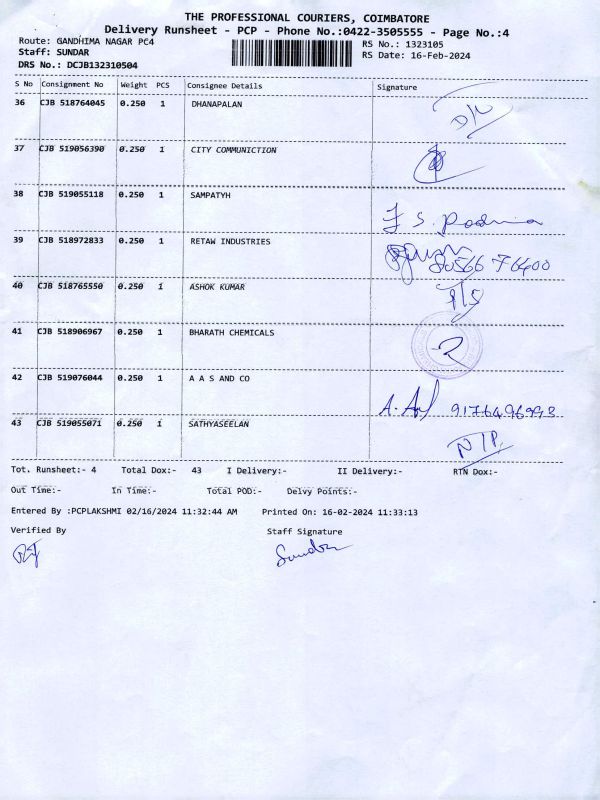 THE PROFESSIONAL COURIERS, COIMBATORE
Delivery Runsheet - PCP - Phone No.:0422-3505555 - Page No.:4
Route: GANDHIMA NAGAR PC4 RS No.: 1323105
Staff: SUNDAR RS Date: 16-Feb-2024
DRS No.: DCJB132310504
S No Consignment No Weight PCS Consignee Details Signature
36 CJB 518764045 0.250 1 DHANAPALAN D/L
37 CJB 519056390 0.250 1 CITY COMMUNICTION
38 CJB 519055118 0.250 1 SAMPATYH
S. Padma
39 CJB 518972833 0.250 1 RETAW INDUSTRIES
80566 76400
40 CJB 518765550 0.250 1 ASHOK KUMAR
41 CJB 518906967 0.250 1 BHARATH CHEMICALS
42 CJB 519076044 0.250 1 A A S AND CO
9176496993
43 CJB 519055071 0.250 1 SATHYASEELAN
N/P
Tot. Runsheet:- 4 Total Dox:- 43 I Delivery:- II Delivery:- RTN Dox:-
Out Time:- In Time:- Total POD:- Delvy Points:-
Entered By :PCPLAKSHMI 02/16/2024 11:32:44 AM Printed On: 16-02-2024 11:33:13
Verified By Staff Signature
Sundar